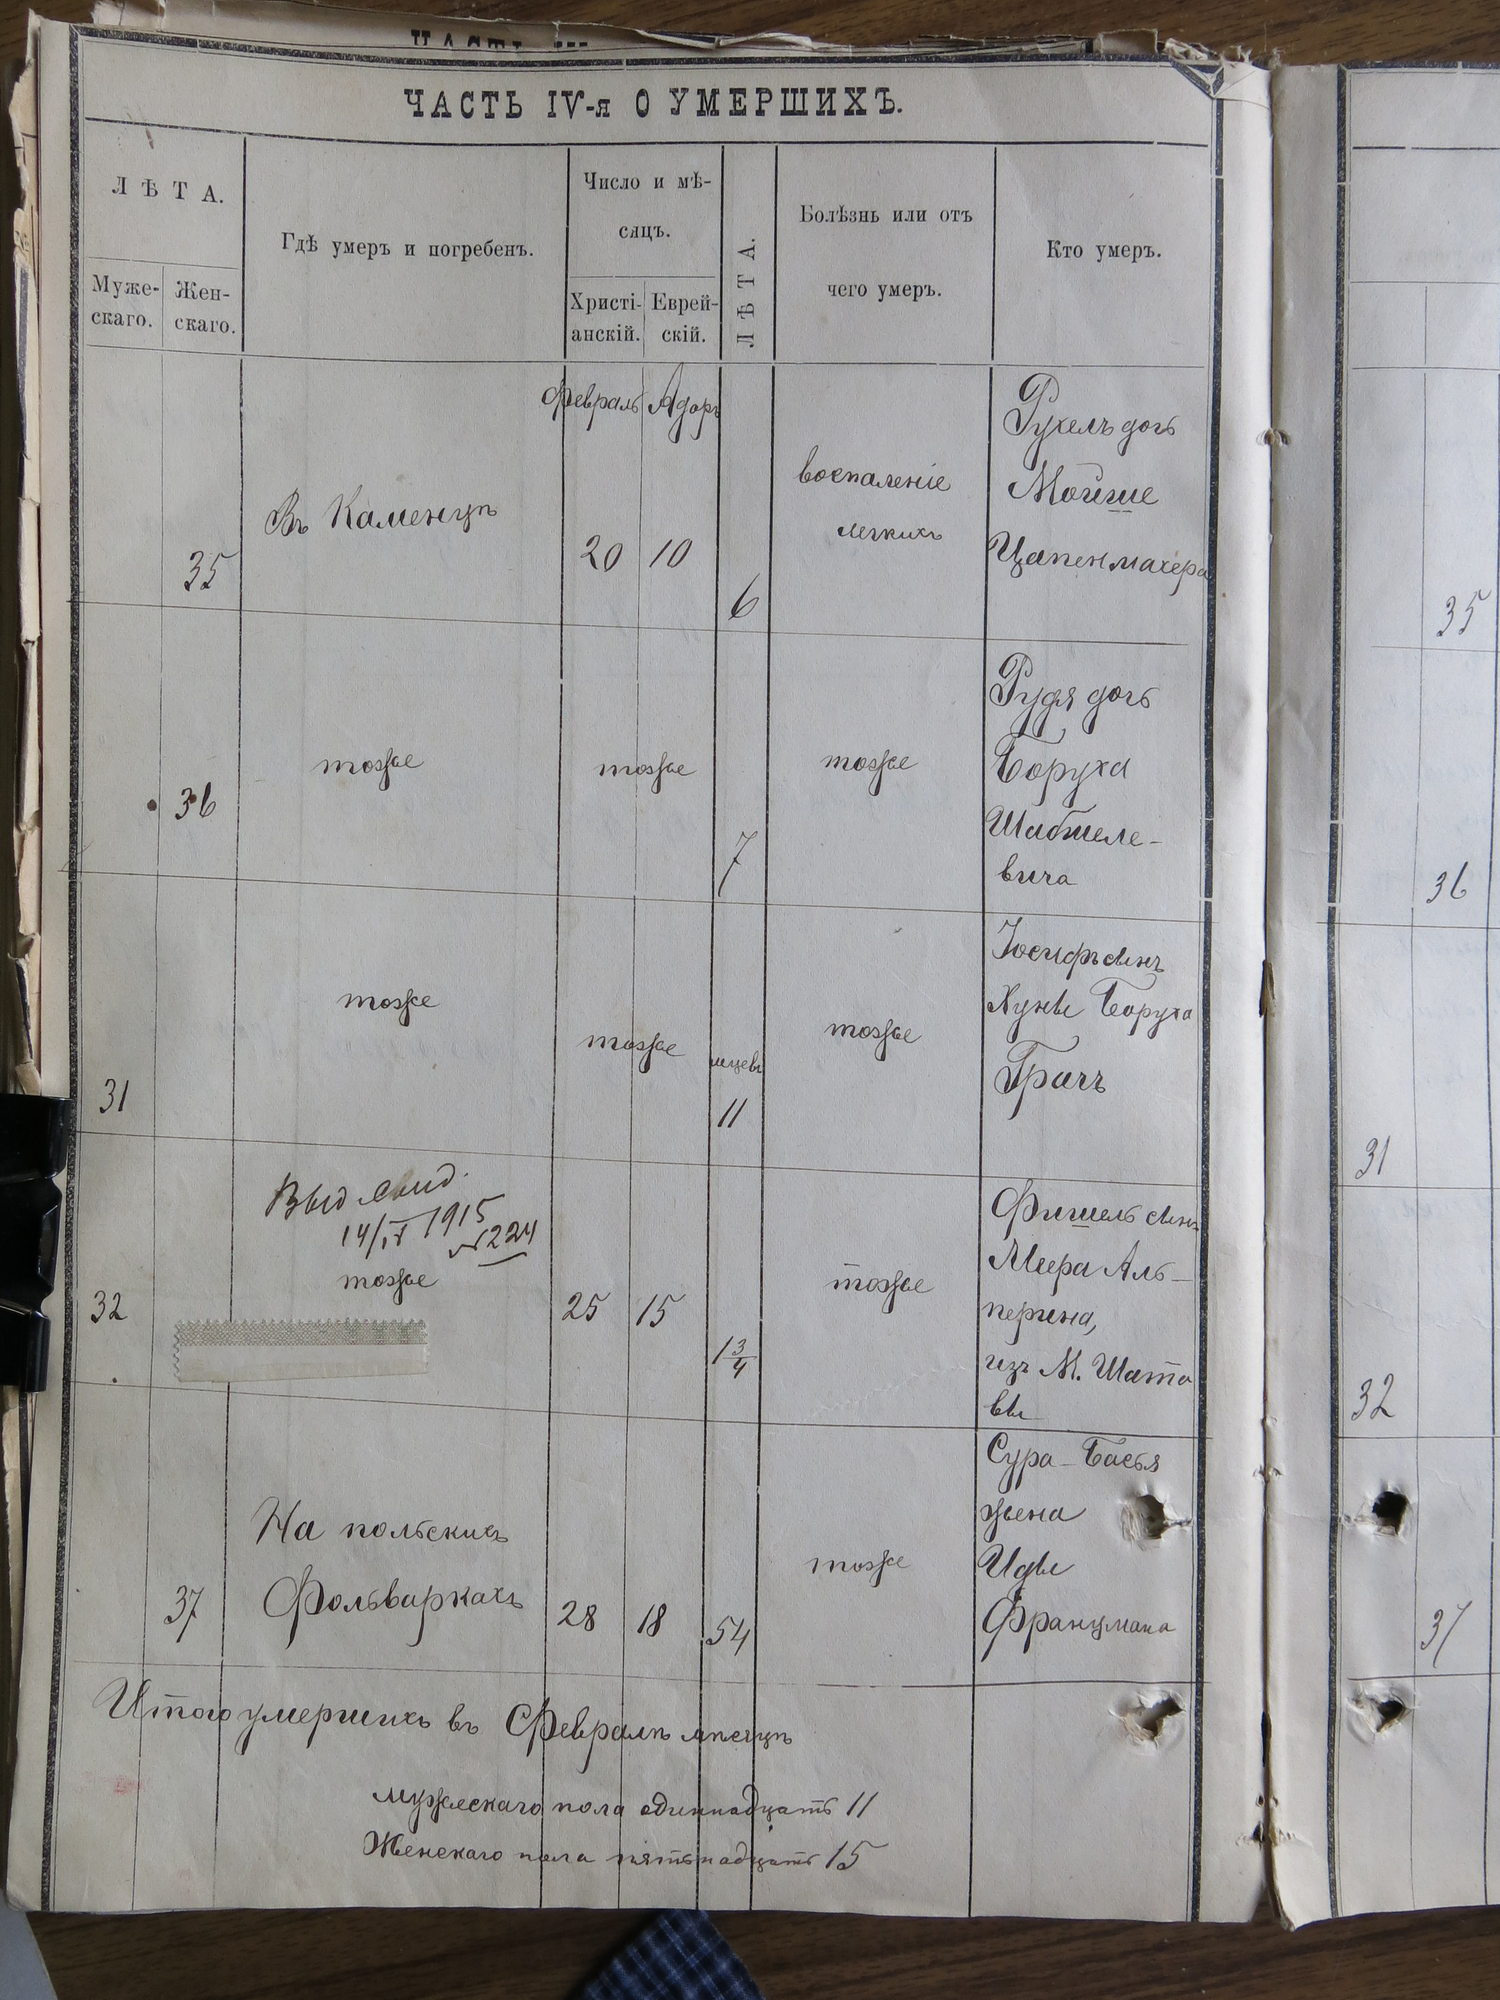 ЧАСТЬ IV-я О УМЕРШИХЪ.
ЛѢТА.
Муже-
скаго.
Жен-
скаго.
Гдѣ умеръ и погребенъ.
Число и мѣ-
сяцъ.
Христі-
анскій.
Еврей-
скій.
ЛѢТА.
Болѣзнь или отъ
чего умеръ.
Кто умеръ.
Февраль Адоръ
35
Въ Каменцѣ
20 10
6
воспаленіе
легкихъ
Рухель дочь
Мойше
Цапенмахера
35
36
тоже
тоже
7
тоже
Рудя дочь
Боруха
Шабтеле-
вича
36
31
тоже
тоже
мцевъ
11
тоже
Іосифъ сынъ
Хуны Боруха
Грачъ
31
Выд. свид.
14/IV 1915
№224
32
тоже
25 15
1 3/4
тоже
Фишель сынъ
Меера Аль-
перина,
изъ М. Шато
вы
32
37
На польскихъ
Фольваркахъ
28 18 54
тоже
Сура-Бася
жена
Иды
Францмана
37
Итого умершихъ въ Февралѣ мѣсяцѣ
мужескаго пола одиннадцать 11
Женскаго пола пятьнадцать 15